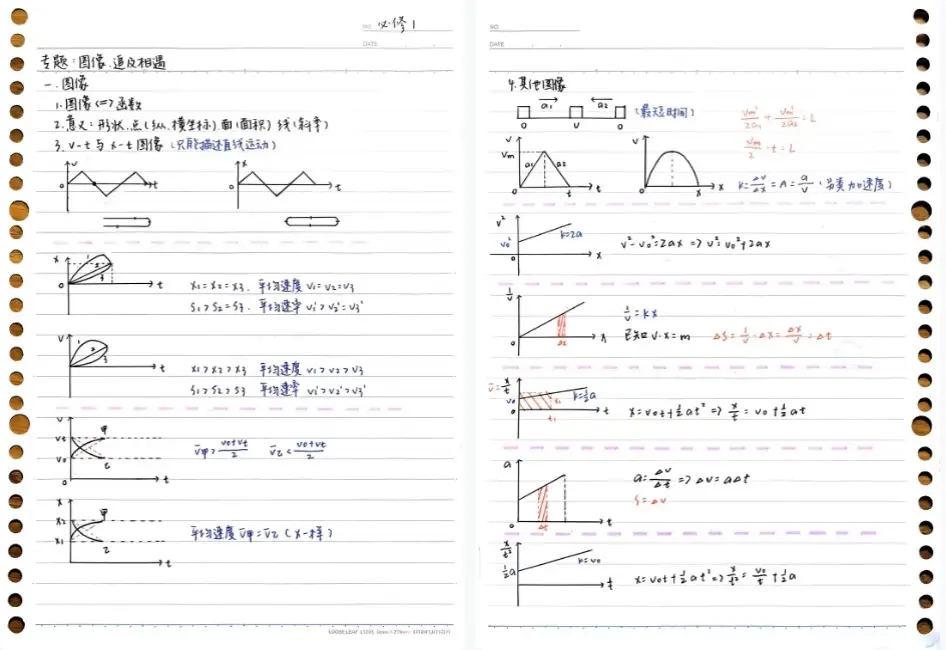 NO. 必修1
DATE
专题:图像、追及相遇
一.图像
1.图像(=)函数
2.意义:形状、点(纵、横坐标)、面(面积)、线(斜率)
3.v-t 与 x-t图像(只能描述直线运动)
v
x
0
t
0
t
x
1
2
3
0
t
x1=x2=x3. 平均速度 v1=v2=v3
s1>s2=s3. 平均速率 v1'>v2'=v3'
v
1
2
3
0
t
x1>x2>x3 平均速度 v1>v2>v3
s1>s2>s3 平均速率 v1'>v2'>v3'
v
vt
v0
甲
乙
t
v̄甲>(v0+vt)/2 v̄乙<(v0+vt)/2
x
x2
x1
甲
乙
t
平均速度 v̄甲=v̄乙(x一样)
NO.
DATE
4.其他图像
a1
a2
0 v 0
(最短时间)
vm²/2a1 + vm²/2a2 = L
vm/2 · t = L
v
vm
a1
a2
0
t
v
0
x
k=Δv/Δx=A=a/v(另类加速度)
v²
v0²
k=2a
0
x
v²-v0²=2ax => v²=v0²+2ax
1/v
0
Δx
x
1/v=kx
已知 v·x=m
ΔS=1/v·Δx=Δx/v=Δt
v̄=x/t
v0
0
k=½a
x1
t1
t
x=v0t+½at² => x/t=v0+½at
a
0
Δt
t
a=Δv/Δt => Δv=aΔt
S=Δv
x/t²
½a
k=v0
t
x=v0t+½at² => x/t²=v0/t+½a